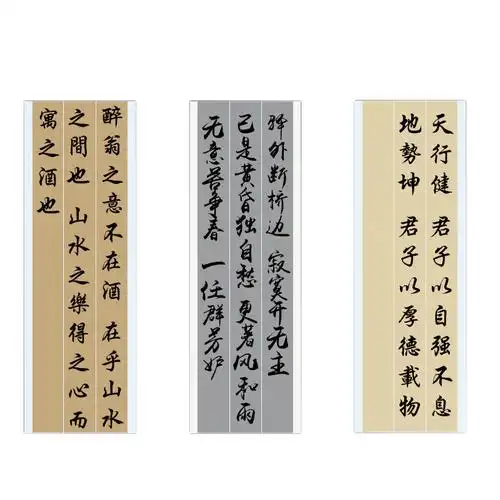 醉翁之意不在酒 在乎山水
之間也 山水之樂得之心而
寓之酒也
驿外断桥边 寂寞开无主
已是黄昏独自愁 更著风和雨
无意苦争春 一任群芳妒
天行健 君子以自强不息
地勢坤 君子以厚德載物